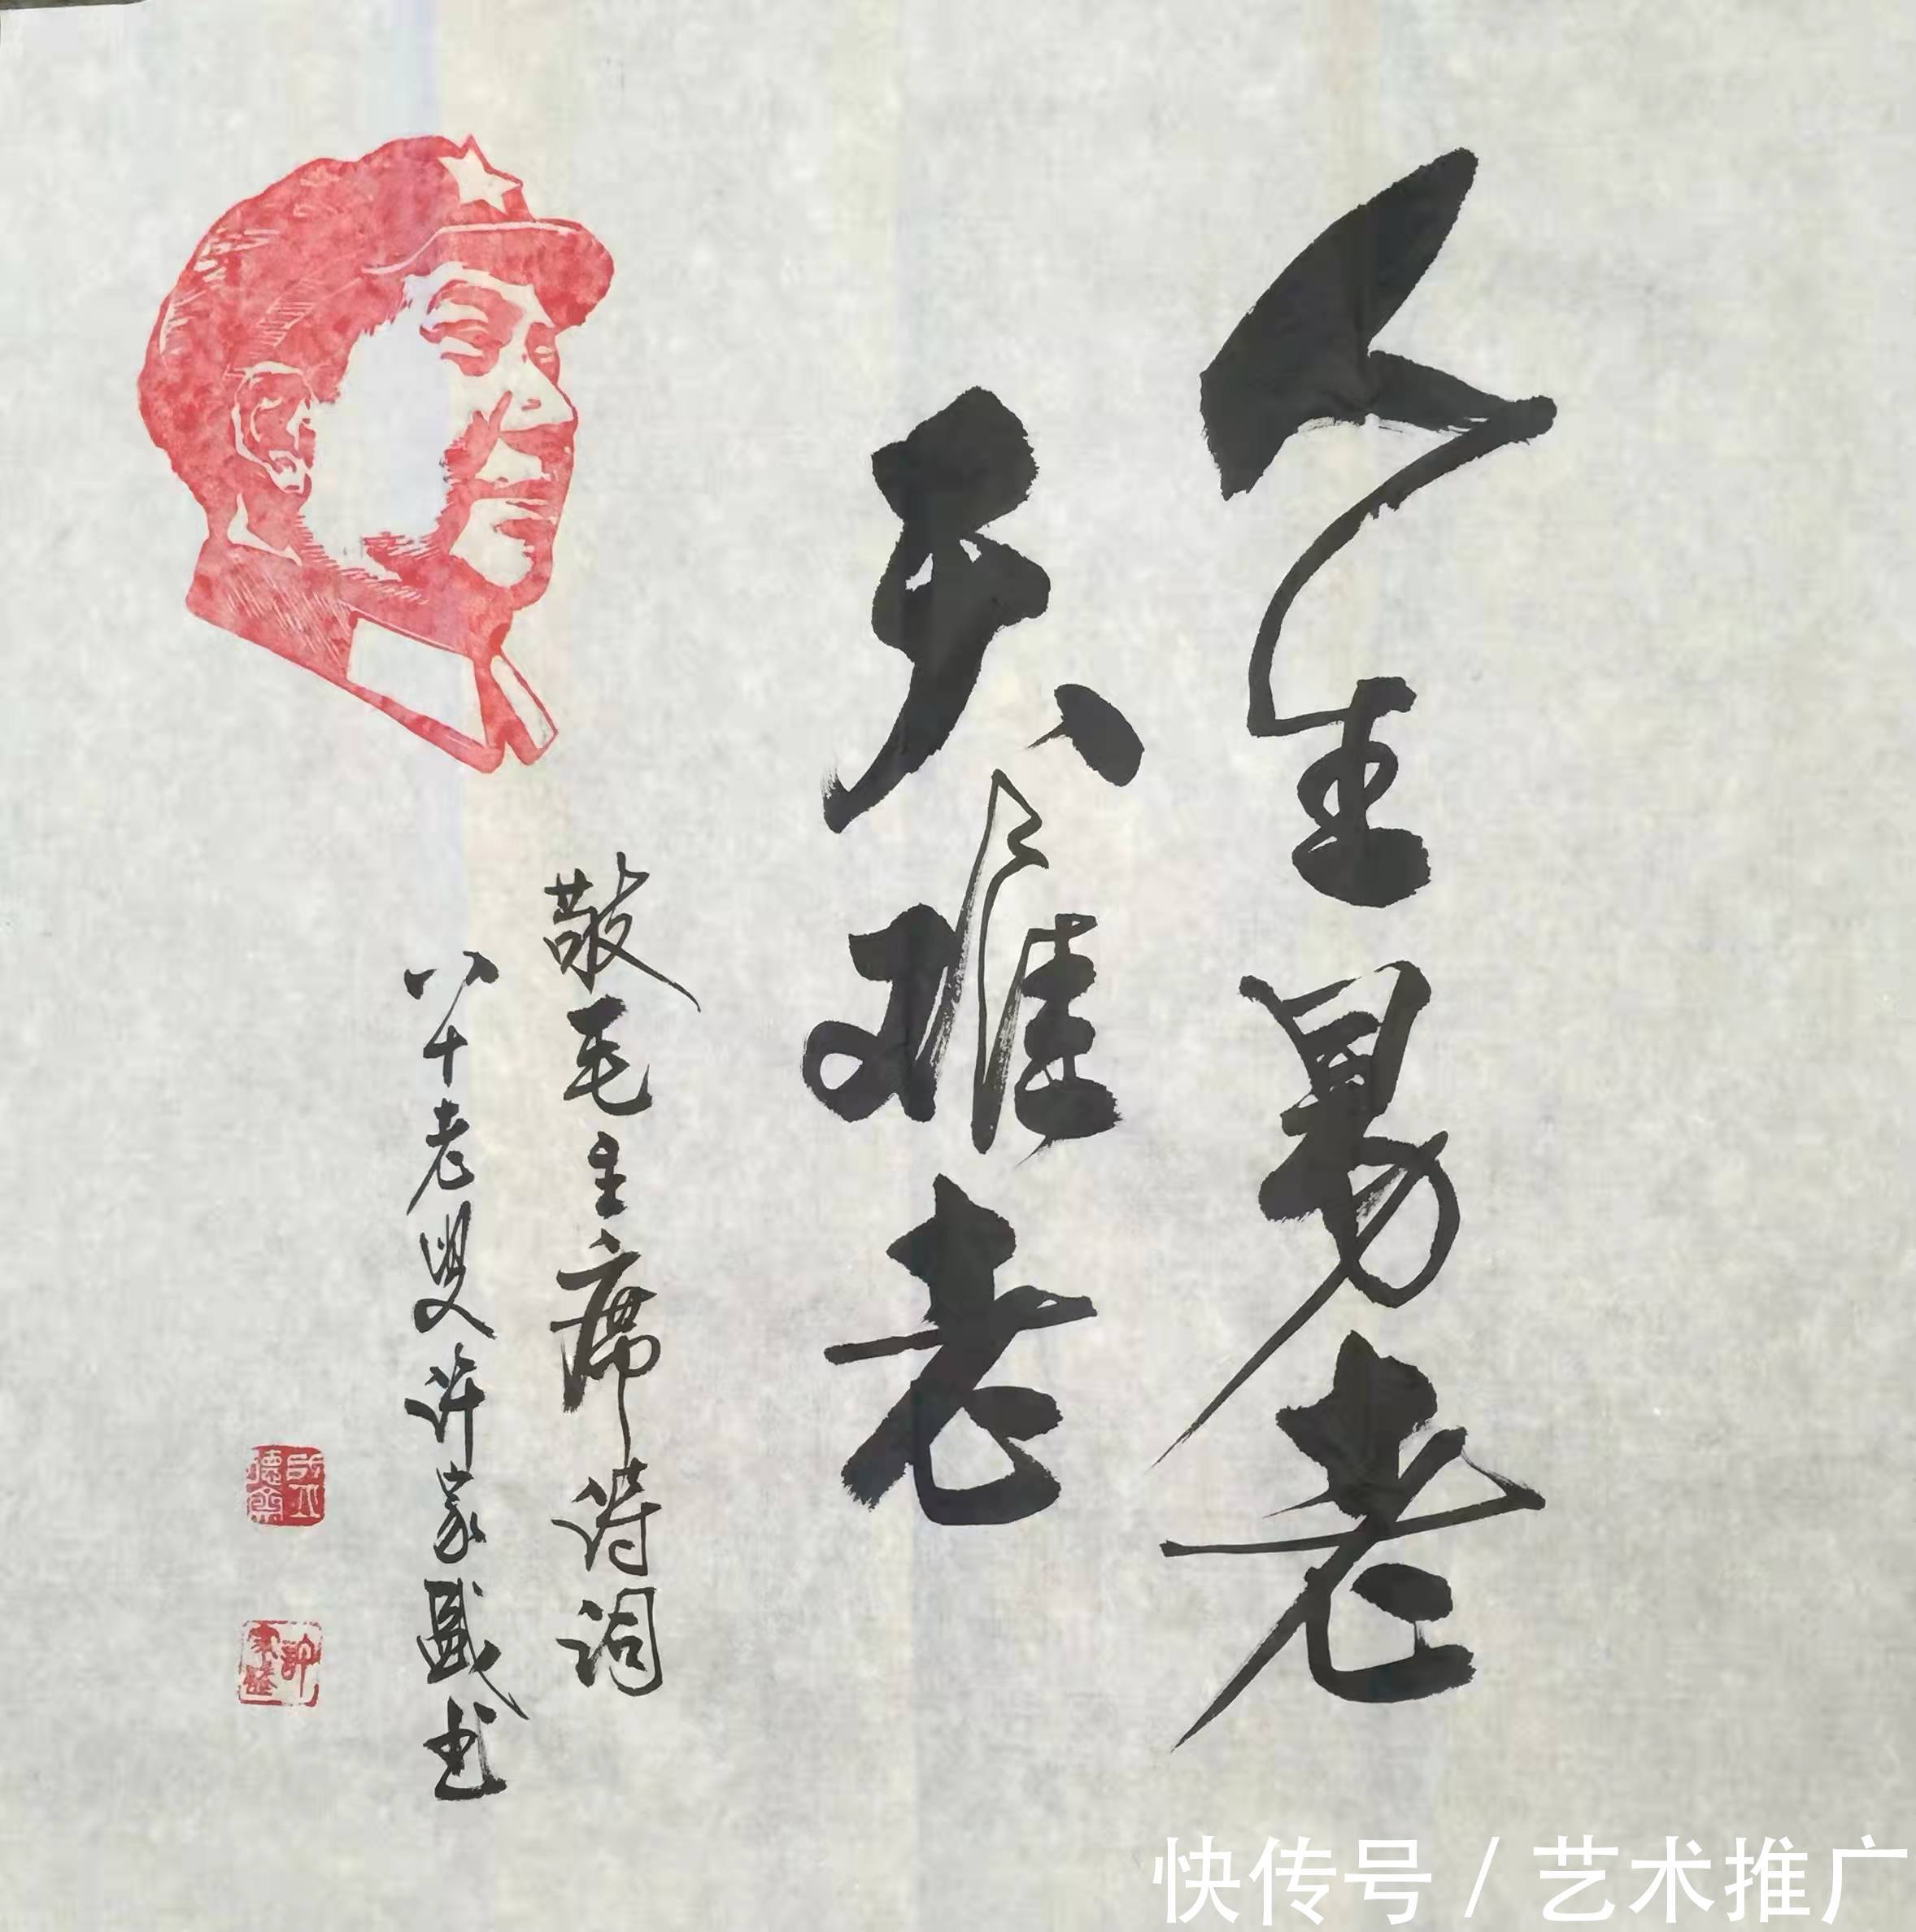 人生易老
天难老
敬毛主席诗词
八十老叟许家盛书
快传号 / 艺术推广